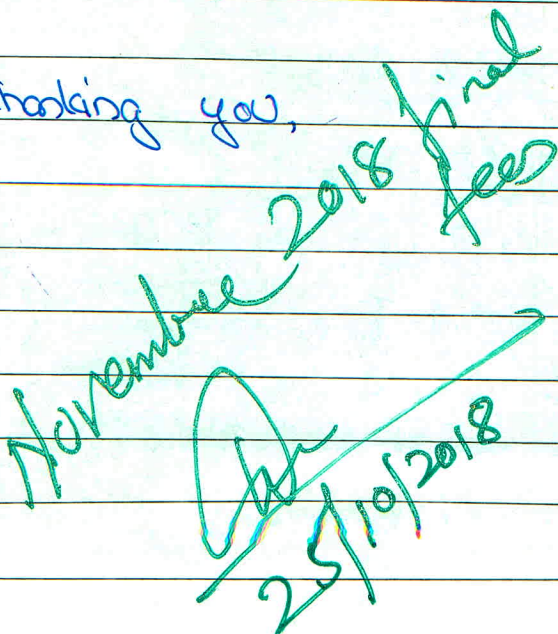 thanking you,
November 2018 final
fees
25/10/2018